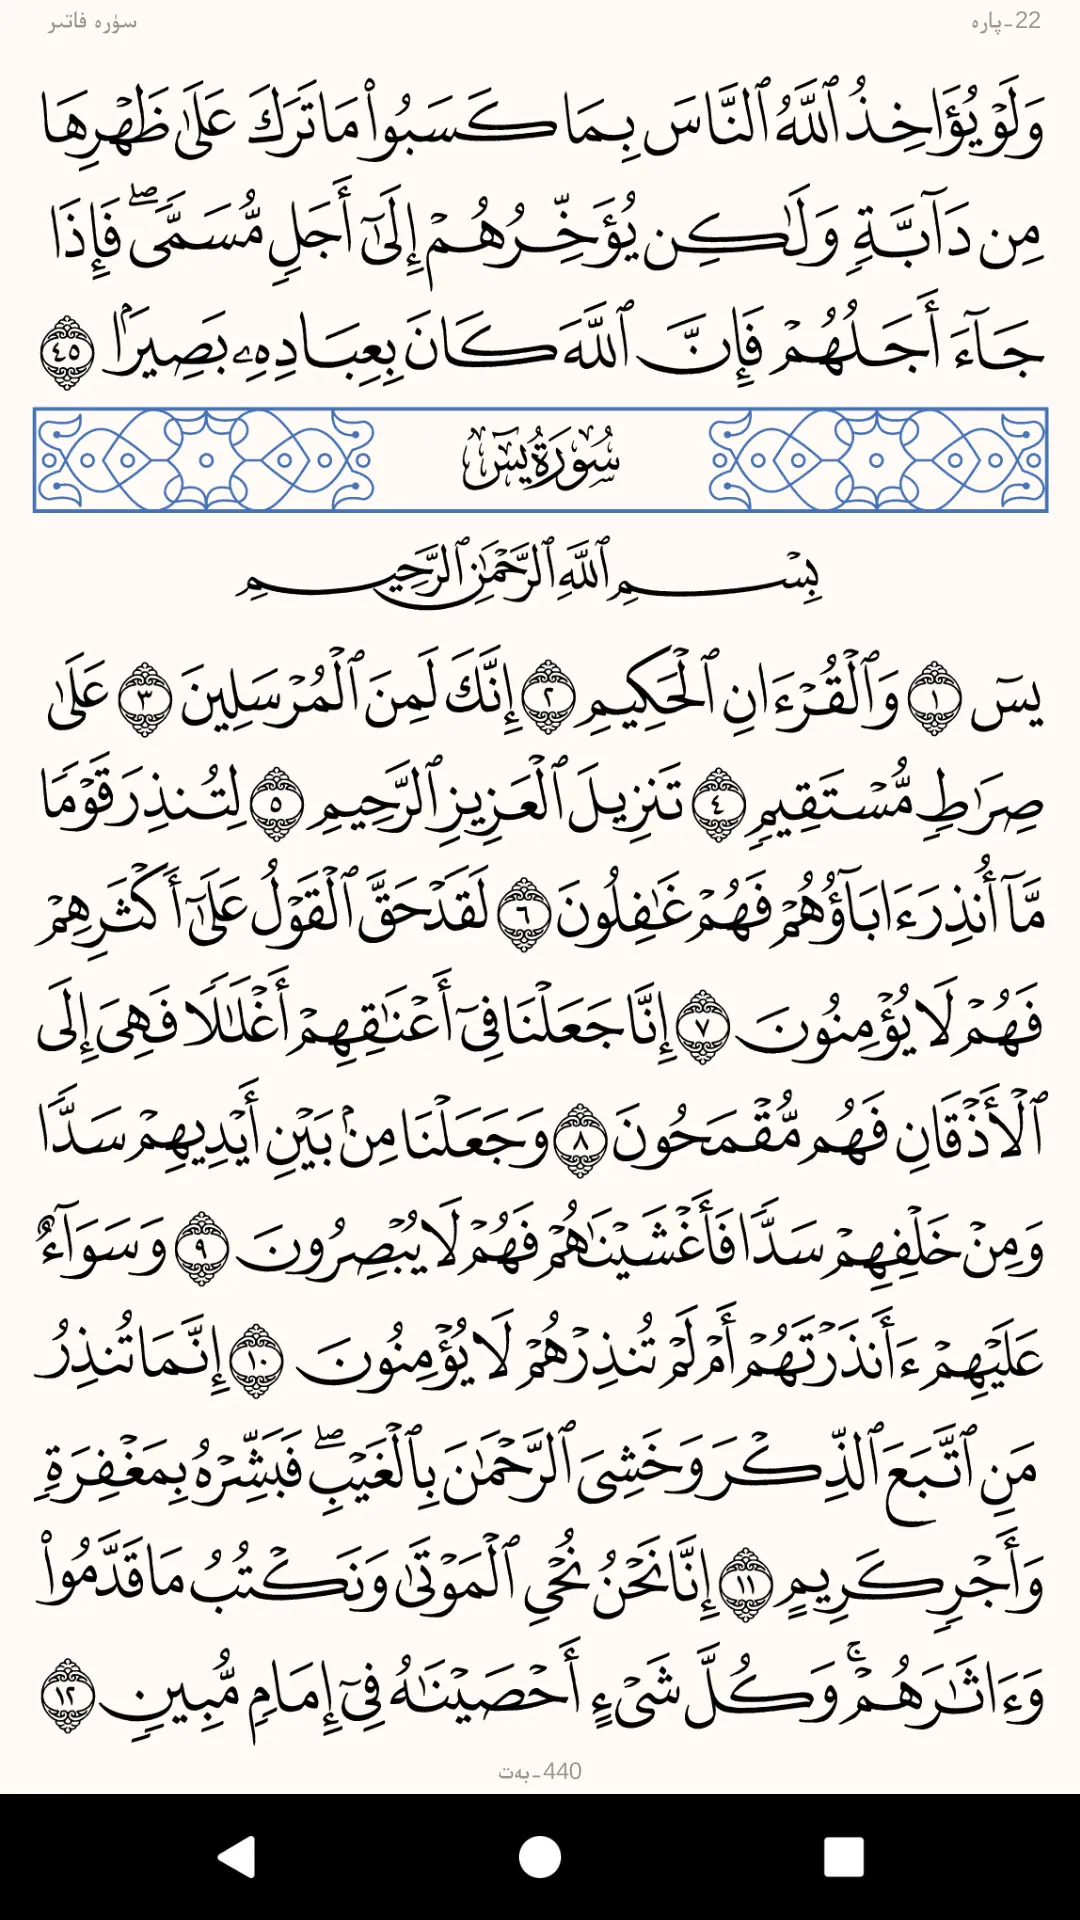 22-پارە
سۈرە فاتىر
وَلَوْ يُؤَاخِذُ ٱللَّهُ ٱلنَّاسَ بِمَا كَسَبُوا۟ مَا تَرَكَ عَلَىٰ ظَهْرِهَا
مِن دَآبَّةٍۢ وَلَـٰكِن يُؤَخِّرُهُمْ إِلَىٰٓ أَجَلٍۢ مُّسَمًّۭى ۖ فَإِذَا
جَآءَ أَجَلُهُمْ فَإِنَّ ٱللَّهَ كَانَ بِعِبَادِهِۦ بَصِيرًۢا ٤٥
سُورَةُ يسٓ
بِسْمِ ٱللَّهِ ٱلرَّحْمَـٰنِ ٱلرَّحِيمِ
يسٓ ١ وَٱلْقُرْءَانِ ٱلْحَكِيمِ ٢ إِنَّكَ لَمِنَ ٱلْمُرْسَلِينَ ٣ عَلَىٰ
صِرَٰطٍۢ مُّسْتَقِيمٍۢ ٤ تَنزِيلَ ٱلْعَزِيزِ ٱلرَّحِيمِ ٥ لِتُنذِرَ قَوْمًۭا
مَّآ أُنذِرَ ءَابَآؤُهُمْ فَهُمْ غَـٰفِلُونَ ٦ لَقَدْ حَقَّ ٱلْقَوْلُ عَلَىٰٓ أَكْثَرِهِمْ
فَهُمْ لَا يُؤْمِنُونَ ٧ إِنَّا جَعَلْنَا فِىٓ أَعْنَـٰقِهِمْ أَغْلَـٰلًۭا فَهِىَ إِلَى
ٱلْأَذْقَانِ فَهُم مُّقْمَحُونَ ٨ وَجَعَلْنَا مِنۢ بَيْنِ أَيْدِيهِمْ سَدًّۭا
وَمِنْ خَلْفِهِمْ سَدًّۭا فَأَغْشَيْنَـٰهُمْ فَهُمْ لَا يُبْصِرُونَ ٩ وَسَوَآءٌ
عَلَيْهِمْ ءَأَنذَرْتَهُمْ أَمْ لَمْ تُنذِرْهُمْ لَا يُؤْمِنُونَ ١٠ إِنَّمَا تُنذِرُ
مَنِ ٱتَّبَعَ ٱلذِّكْرَ وَخَشِىَ ٱلرَّحْمَـٰنَ بِٱلْغَيْبِ ۖ فَبَشِّرْهُ بِمَغْفِرَةٍۢ
وَأَجْرٍۢ كَرِيمٍ ١١ إِنَّا نَحْنُ نُحْىِ ٱلْمَوْتَىٰ وَنَكْتُبُ مَا قَدَّمُوا۟
وَءَاثَـٰرَهُمْ ۚ وَكُلَّ شَىْءٍ أَحْصَيْنَـٰهُ فِىٓ إِمَامٍۢ مُّبِينٍۢ ١٢
440-بەت